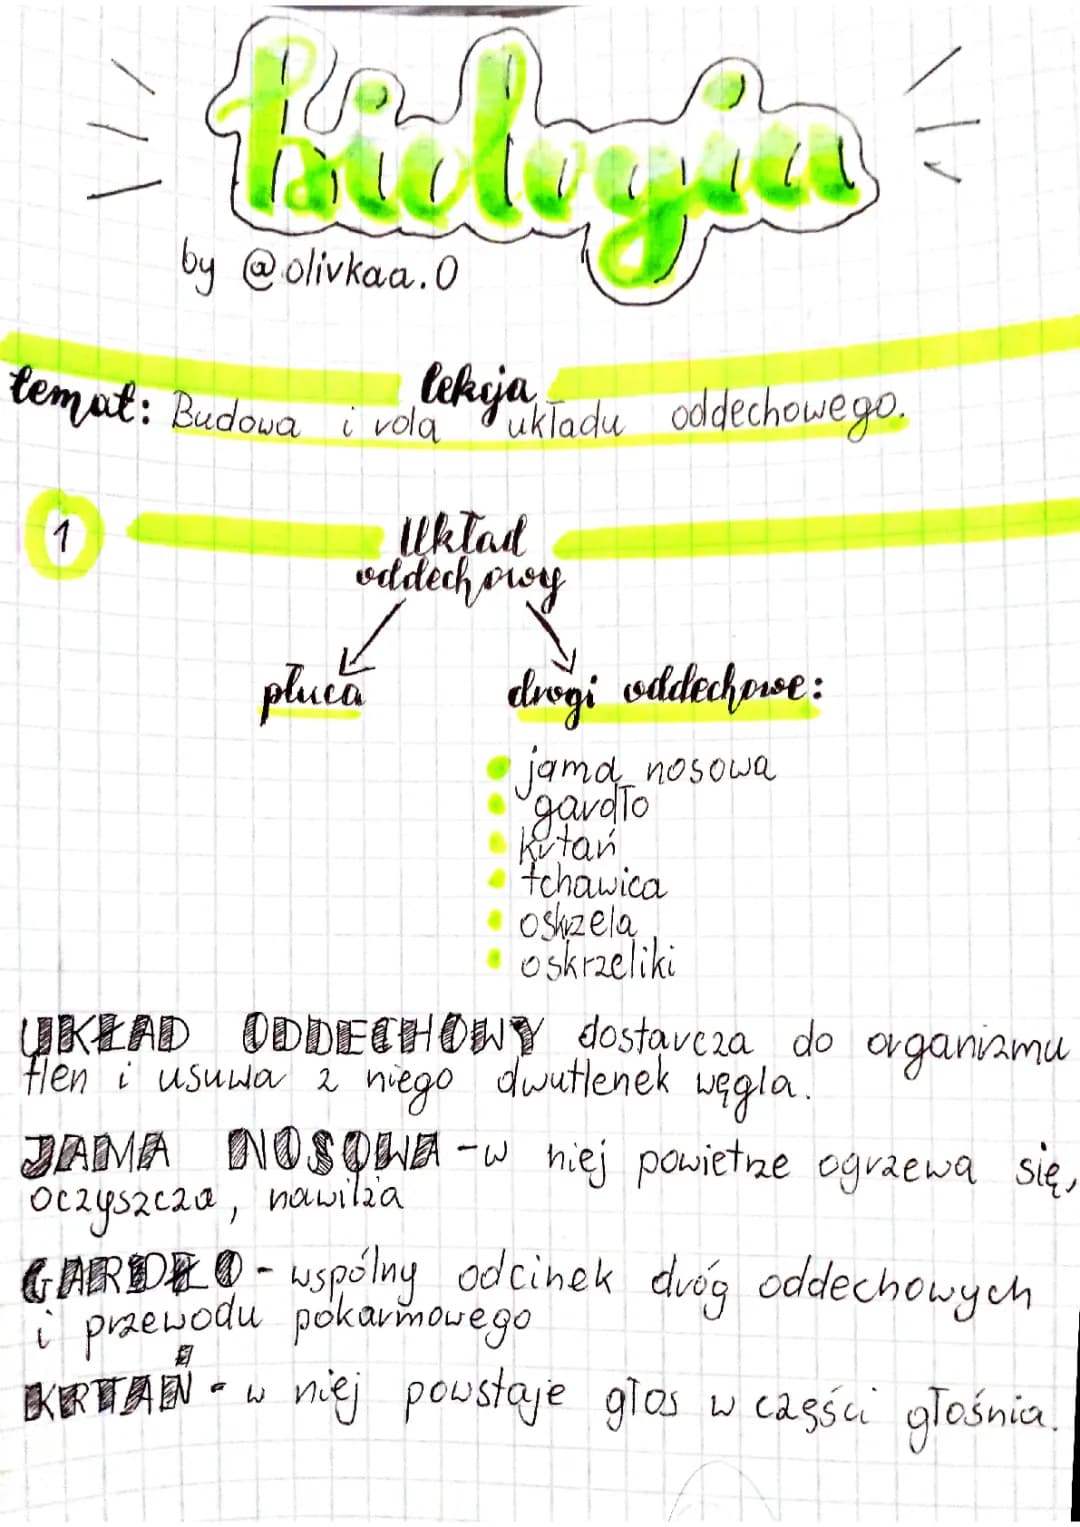 biologia
by @olivkaa.O
lekcja
temat: Budowa i rola układu oddechowego.
1
Układ
oddechowy
płuca
drogi oddechowe:
jama nosowa
gardło
krtań
tchawica
oskrzela
oskrzeliki
UKŁAD ODDECHOWY dostarcza do organizmu
tlen i usuwa z niego dwutlenek węgla.
JAMA NOSOWA - w niej powietrze ogrzewa się,
oczyszcza, nawilża
GARDŁO - wspólny odcinek dróg oddechowych
i przewodu pokarmowego
KRTAŃ - w niej powstaje głos w części głośnia.